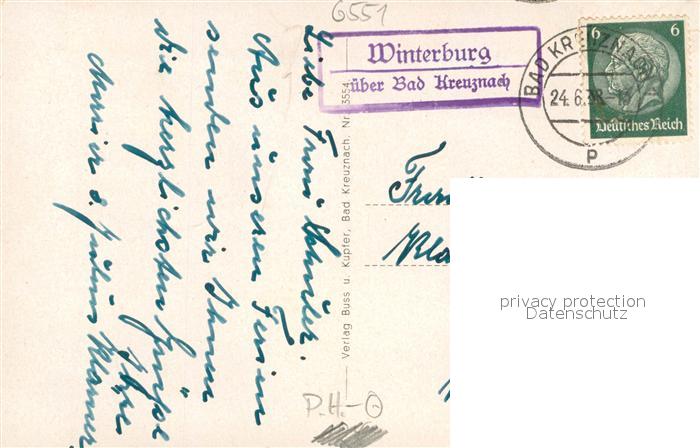 6551
Winterburg
über Bad Kreuznach
BAD KREUZNACH
24.6.38
P
6 6
Deutsches Reich
Liebe Frau
Aus unseren Ferien
senden wir Ihnen
die herzlichsten Grüße
Ihre
u. Julius
Verlag Buss u. Kupfer, Bad Kreuznach. Nr. 3554
privacy protection
Datenschutz
P.H.-O